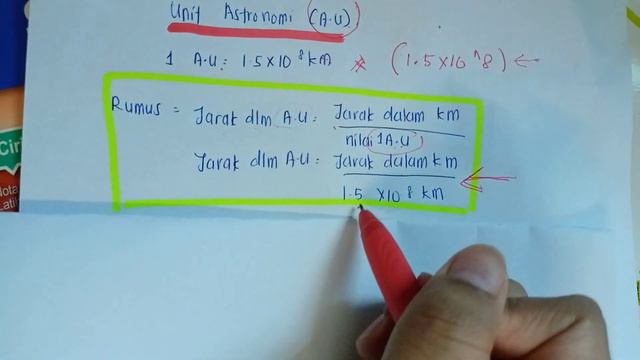 Unit Astronomi (A.U)
1 A.U = 1.5x10 8 km * (1.5x10^8) ←
Rumus = Jarak dlm A.U = Jarak dalam km
nilai 1A.U
Jarak dlm A.U = Jarak dalam km
1.5 x10 8 km
Ciri